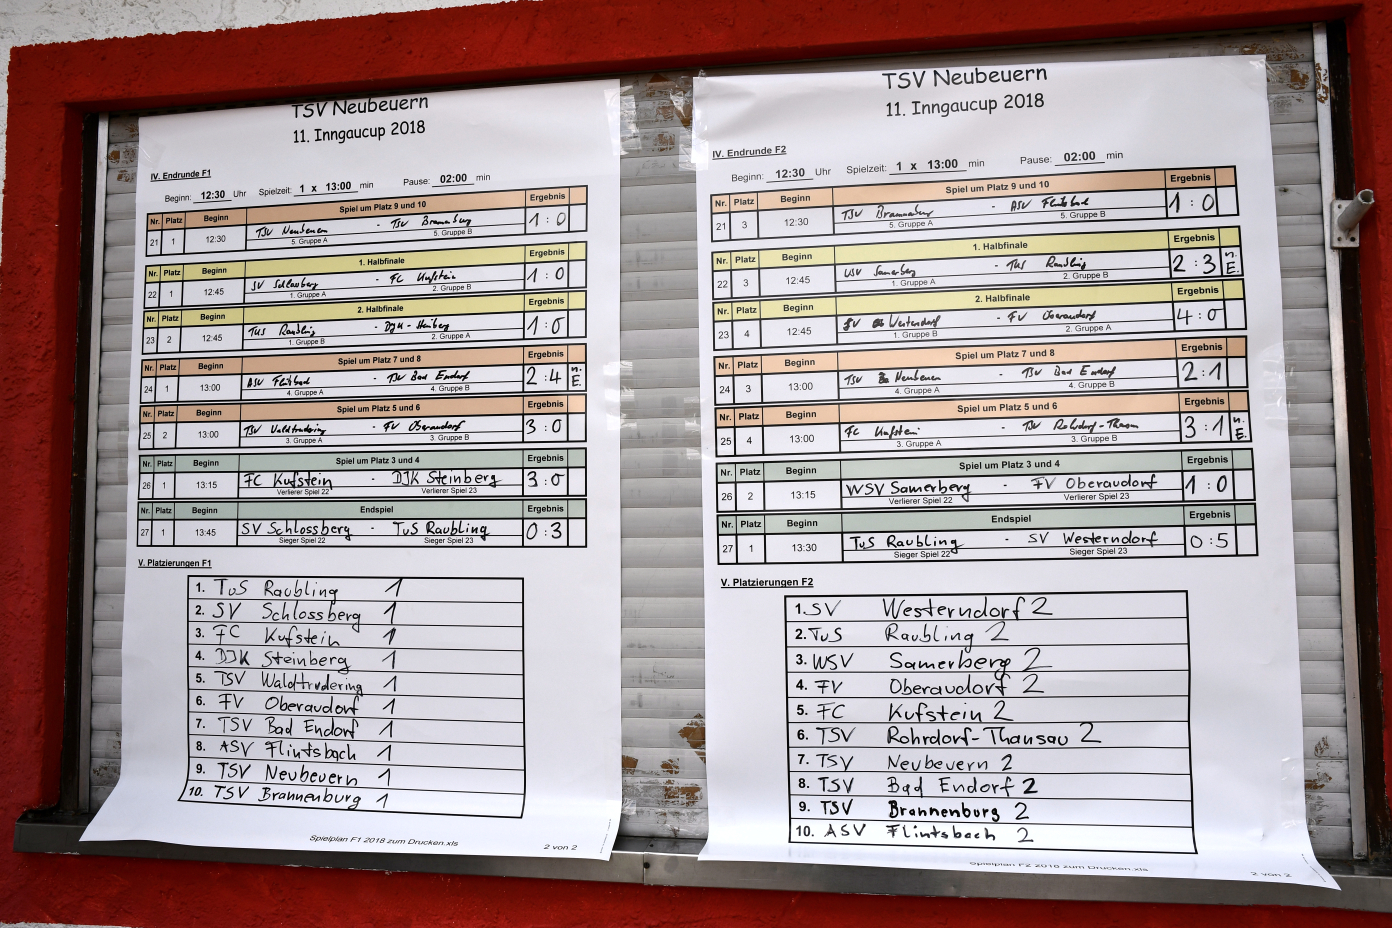 TSV Neubeuern
11. Inngaucup 2018
IV. Endrunde F1
Beginn: 12:30 Uhr Spielzeit: 1 x 13:00 min Pause: 02:00 min
Nr. Platz Beginn Spiel um Platz 9 und 10 Ergebnis
21 1 12:30 TSV Neubeuern - TSV Brannenburg 1 : 0
5. Gruppe A 5. Gruppe B
Nr. Platz Beginn 1. Halbfinale Ergebnis
22 1 12:45 SV Schlossberg - FC Kufstein 1 : 0
1. Gruppe A 2. Gruppe B
Nr. Platz Beginn 2. Halbfinale Ergebnis
23 2 12:45 TuS Raubling - DJK - Steinberg 1 : 0
1. Gruppe B 2. Gruppe A
Nr. Platz Beginn Spiel um Platz 7 und 8 Ergebnis
24 1 13:00 ASV Flintsbach - TSV Bad Endorf 2 : 4 n. E.
4. Gruppe A 4. Gruppe B
Nr. Platz Beginn Spiel um Platz 5 und 6 Ergebnis
25 2 13:00 TSV Waldtrudering - FV Oberaudorf 3 : 0
3. Gruppe A 3. Gruppe B
Nr. Platz Beginn Spiel um Platz 3 und 4 Ergebnis
26 1 13:15 FC Kufstein - DJK Steinberg 3 : 0
Verlierer Spiel 22 Verlierer Spiel 23
Nr. Platz Beginn Endspiel Ergebnis
27 1 13:45 SV Schlossberg - TuS Raubling 0 : 3
Sieger Spiel 22 Sieger Spiel 23
V. Platzierungen F1
1. TuS Raubling 1
2. SV Schlossberg 1
3. FC Kufstein 1
4. DJK Steinberg 1
5. TSV Waldtrudering 1
6. FV Oberaudorf 1
7. TSV Bad Endorf 1
8. ASV Flintsbach 1
9. TSV Neubeuern 1
10. TSV Brannenburg 1
Spielplan F1 2018 zum Drucken.xls 2 von 2
TSV Neubeuern
11. Inngaucup 2018
IV. Endrunde F2
Beginn: 12:30 Uhr Spielzeit: 1 x 13:00 min Pause: 02:00 min
Nr. Platz Beginn Spiel um Platz 9 und 10 Ergebnis
21 3 12:30 TSV Brannenburg - ASV Flintsbach 1 : 0
5. Gruppe A 5. Gruppe B
Nr. Platz Beginn 1. Halbfinale Ergebnis
22 3 12:45 WSV Samerberg - TuS Raubling 2 : 3 n. E.
1. Gruppe A 2. Gruppe B
Nr. Platz Beginn 2. Halbfinale Ergebnis
23 4 12:45 SV Westerndorf - FV Oberaudorf 4 : 0
1. Gruppe B 2. Gruppe A
Nr. Platz Beginn Spiel um Platz 7 und 8 Ergebnis
24 3 13:00 TSV Neubeuern - TSV Bad Endorf 2 : 1
4. Gruppe A 4. Gruppe B
Nr. Platz Beginn Spiel um Platz 5 und 6 Ergebnis
25 4 13:00 FC Kufstein - TSV Rohrdorf-Thansau 3 : 1 n. E.
3. Gruppe A 3. Gruppe B
Nr. Platz Beginn Spiel um Platz 3 und 4 Ergebnis
26 2 13:15 WSV Samerberg - FV Oberaudorf 1 : 0
Verlierer Spiel 22 Verlierer Spiel 23
Nr. Platz Beginn Endspiel Ergebnis
27 1 13:30 TuS Raubling - SV Westerndorf 0 : 5
Sieger Spiel 22 Sieger Spiel 23
V. Platzierungen F2
1. SV Westerndorf 2
2. TuS Raubling 2
3. WSV Samerberg 2
4. FV Oberaudorf 2
5. FC Kufstein 2
6. TSV Rohrdorf-Thansau 2
7. TSV Neubeuern 2
8. TSV Bad Endorf 2
9. TSV Brannenburg 2
10. ASV Flintsbach 2
Spielplan F2 2018 zum Drucken.xls 2 von 2